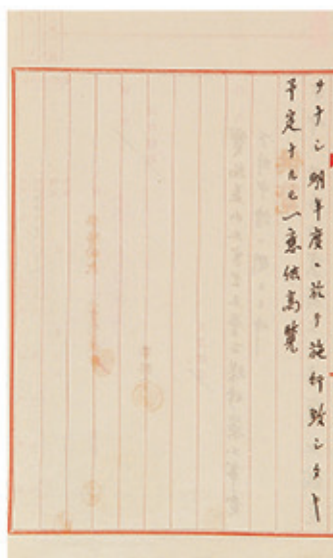 ナナシ明年度ニ於テ施行致シタキ
予定ナルモ一應供高覧